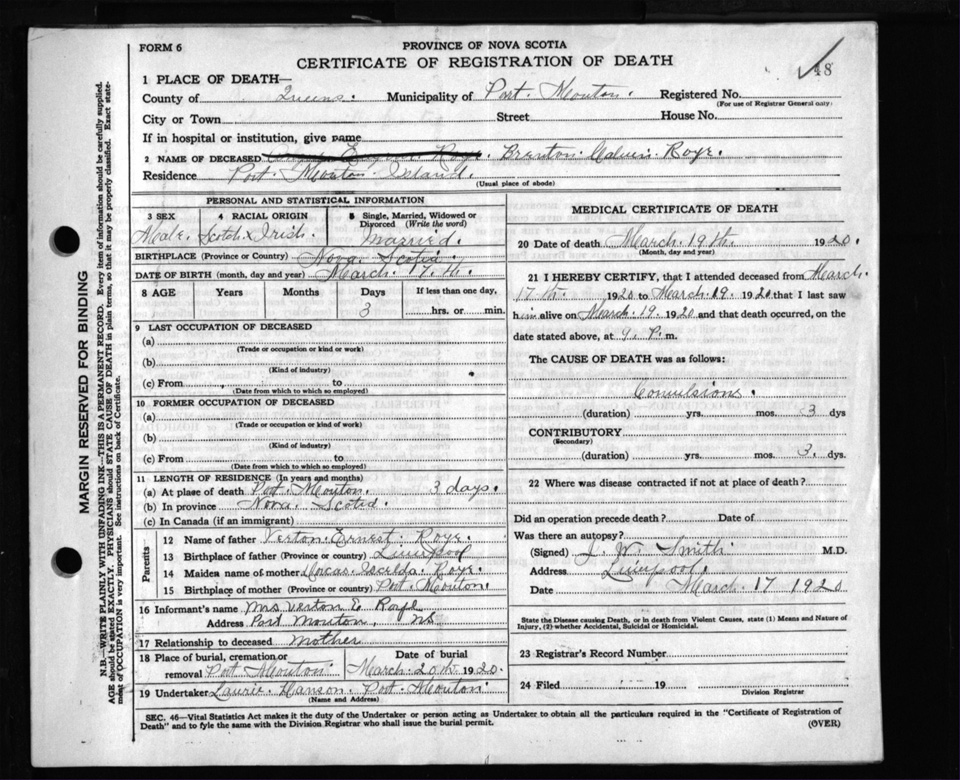 FORM 6
PROVINCE OF NOVA SCOTIA
CERTIFICATE OF REGISTRATION OF DEATH
48
1 PLACE OF DEATH—
County of Queens. Municipality of Port. Mouton. Registered No.
(For use of Registrar General only)
City or Town Street House No.
If in hospital or institution, give name
2 NAME OF DECEASED Eugene Roye. Brenton. Calvin. Roye.
Residence Port. Mouton. Island.
(Usual place of abode)
PERSONAL AND STATISTICAL INFORMATION
3 SEX 4 RACIAL ORIGIN 5 Single, Married, Widowed or Divorced (Write the word)
Male. Scotch x Irish. Married.
BIRTHPLACE (Province or Country) Nova. Scotia.
DATE OF BIRTH (month, day and year) March. 17.th.
8 AGE Years Months Days If less than one day,
3 hrs. or min.
9 LAST OCCUPATION OF DECEASED
(a)
(Trade or occupation or kind or work)
(b)
(Kind of industry)
(c) From to
(Date from which to which so employed)
10 FORMER OCCUPATION OF DECEASED
(a)
(Trade or occupation or kind of work)
(b)
(Kind of industry)
(c) From to
(Date from which to which so employed)
11 LENGTH OF RESIDENCE (In years and months)
(a) At place of death Port. Mouton. 3 days.
(b) In province Nova. Scotia.
(c) In Canada (if an immigrant)
Parents
12 Name of father Verton. Ernest. Roye.
13 Birthplace of father (Province or country) Liverpool
14 Maiden name of mother Roye.
15 Birthplace of mother (Province or country) Port. Mouton.
16 Informant's name Mrs Verton E.
Address Port Mouton, NS
17 Relationship to deceased Mother
18 Place of burial, cremation or removal Port. Mouton. Date of burial March. 20th. 1920.
19 Undertaker Laurie. Hanson. Port. Mouton.
(Name and Address)
MEDICAL CERTIFICATE OF DEATH
20 Date of death March. 19.th. 1920.
(Month, day and year)
21 I HEREBY CERTIFY, that I attended deceased from March.
17th. 1920 to March. 19. 1920 that I last saw
him alive on March. 19. 1920 and that death occurred, on the
date stated above, at 9. P. m.
The CAUSE OF DEATH was as follows:
Convulsions.
(duration) yrs. mos. 3 dys
CONTRIBUTORY
(Secondary)
(duration) yrs. mos. 3. dys.
22 Where was disease contracted if not at place of death?
Did an operation precede death? Date of
Was there an autopsy?
(Signed) J. W. Smith M.D.
Address Liverpool.
Date March. 17 1920
State the Disease causing Death, or in death from Violent Causes, state (1) Means and Nature of
Injury, (2) whether Accidental, Suicidal or Homicidal.
23 Registrar's Record Number
24 Filed 19
Division Registrar
SEC. 46—Vital Statistics Act makes it the duty of the Undertaker or person acting as Undertaker to obtain all the particulars required in the "Certificate of Registration of
Death" and to fyle the same with the Division Registrar who shall issue the burial permit. (OVER)
MARGIN RESERVED FOR BINDING
N.B.—WRITE PLAINLY WITH UNFADING INK—THIS IS A PERMANENT RECORD. Every item of information should be carefully supplied.
AGE should be stated EXACTLY. PHYSICIANS should STATE CAUSE OF DEATH in plain terms, so that it may be properly classified. Exact state-
ment of OCCUPATION is very important. See instructions on back of Certificate.